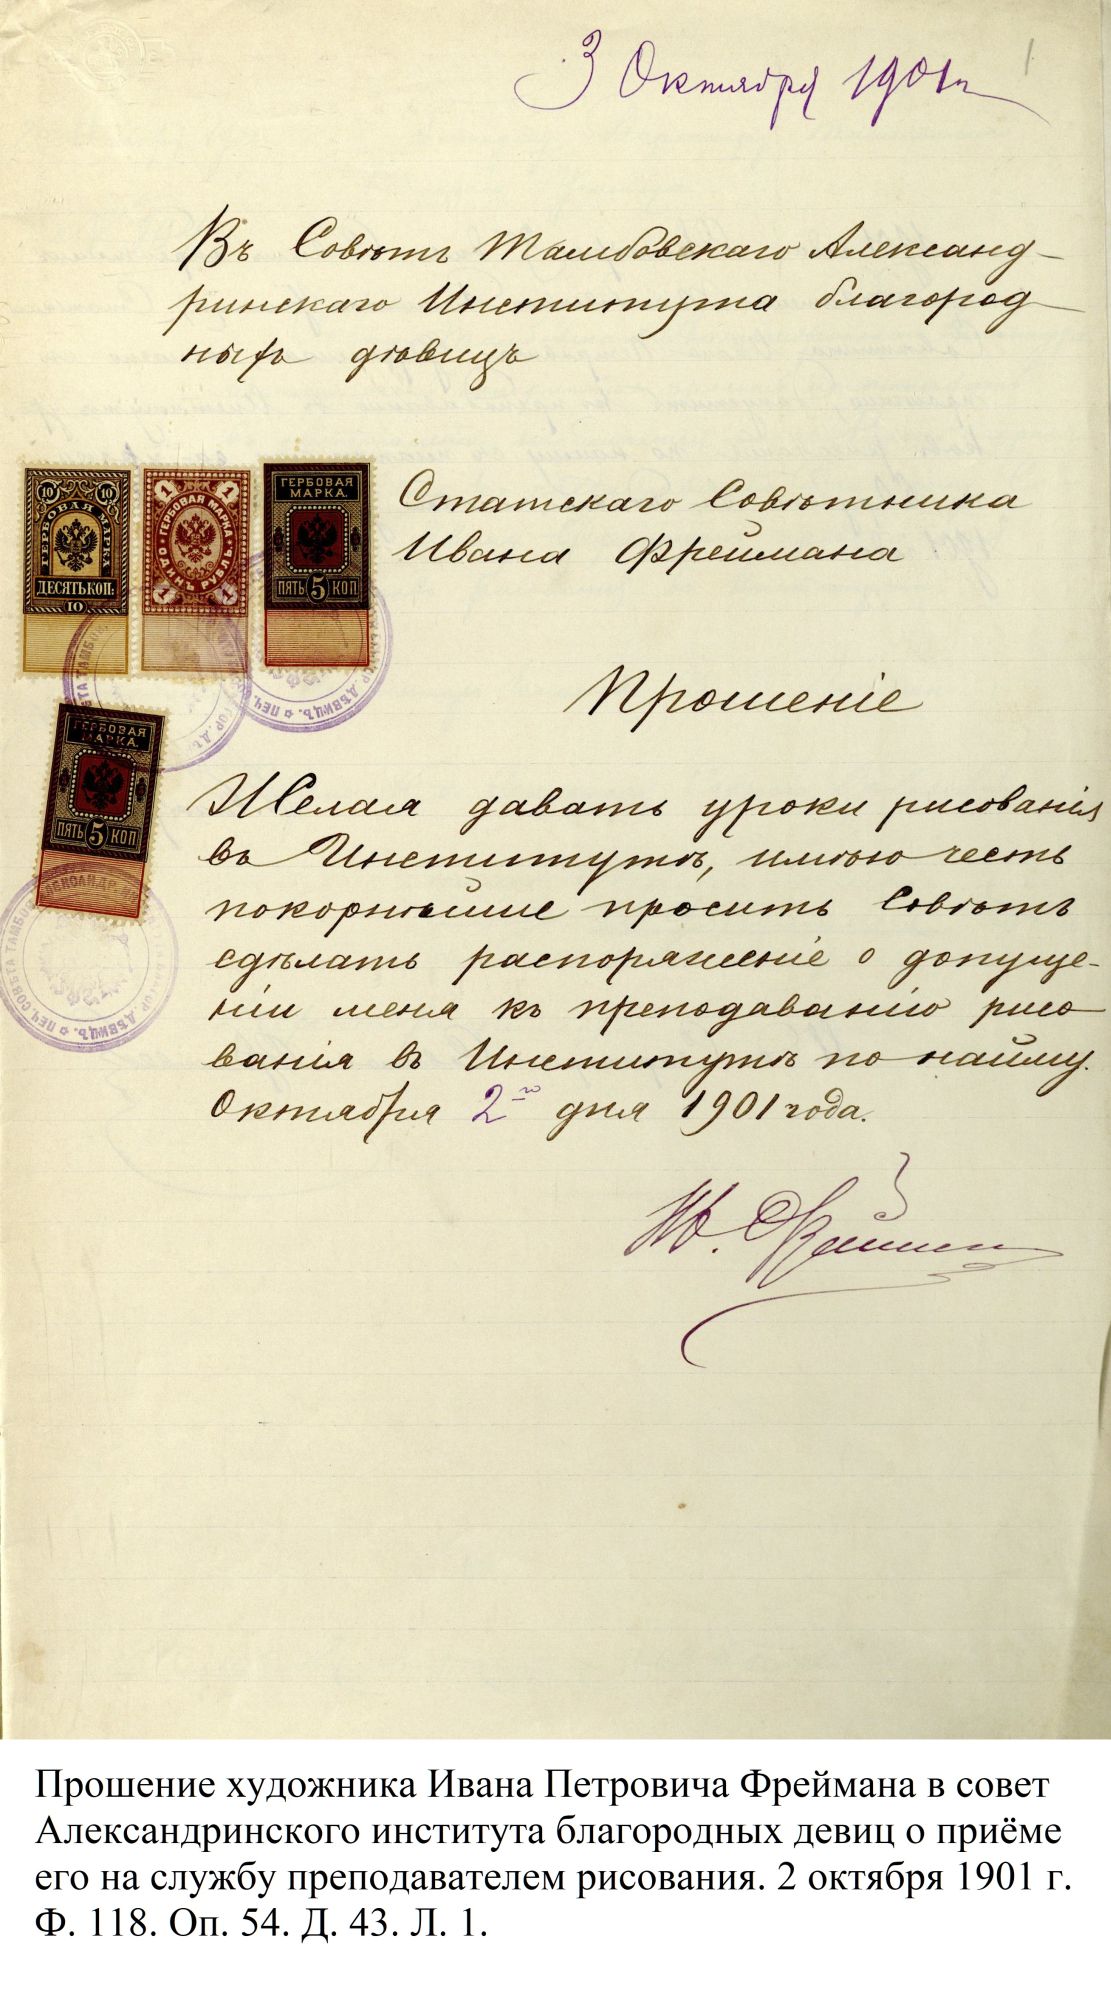 3 Октября 1901 г.
1
Въ Совѣтъ Тамбовскаго Александ-
ринскаго Института благород
ныхъ дѣвицъ
Статскаго Совѣтника
Ивана Фреймана
10 10
ГЕРБОВАЯ МАРКА
ДЕСЯТЬ КОП:
10
1 1
ГЕРБОВАЯ МАРКА
ОДИНЪ РУБЛЬ
1 1
ГЕРБОВАЯ
МАРКА.
ПЯТЬ 5 КОП
ДѢВИЦЪ. ПЕЧ.
Прошеніе
ГЕРБОВАЯ
МАРКА.
ПЯТЬ 5 КОП
ПЕЧ. СОВѢТА ТАМБОВ АЛЕКСАНДР. ДѢВИЦЪ.
Желая давать уроки рисованія
въ Институтѣ, имѣю честь
покорнѣйше просить Совѣтъ
сдѣлать распоряженіе о допуще-
ніи меня къ преподаванію рисо
ванія въ Институтѣ по найму.
Октября 2го дня 1901 года.
Ив. Фрейман
Прошение художника Ивана Петровича Фреймана в совет
Александринского института благородных девиц о приёме
его на службу преподавателем рисования. 2 октября 1901 г.
Ф. 118. Оп. 54. Д. 43. Л. 1.